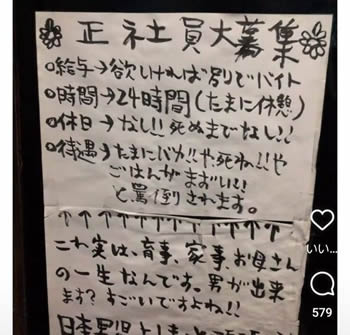 正社員大募集
○給与→欲しければ別でバイト
○時間→24時間(たまに休憩)
○休日→なし!!死ぬまでなし!!
○待遇→たまにバカ!!や、死ね!!や
ごはんがまずい!!
と罵倒されます。
↑↑↑↑↑↑↑↑↑↑↑↑
これ実は、育事、家事、お母さん
の一生なんです。男が出来
ます?すごいですよね!!
いい...
579